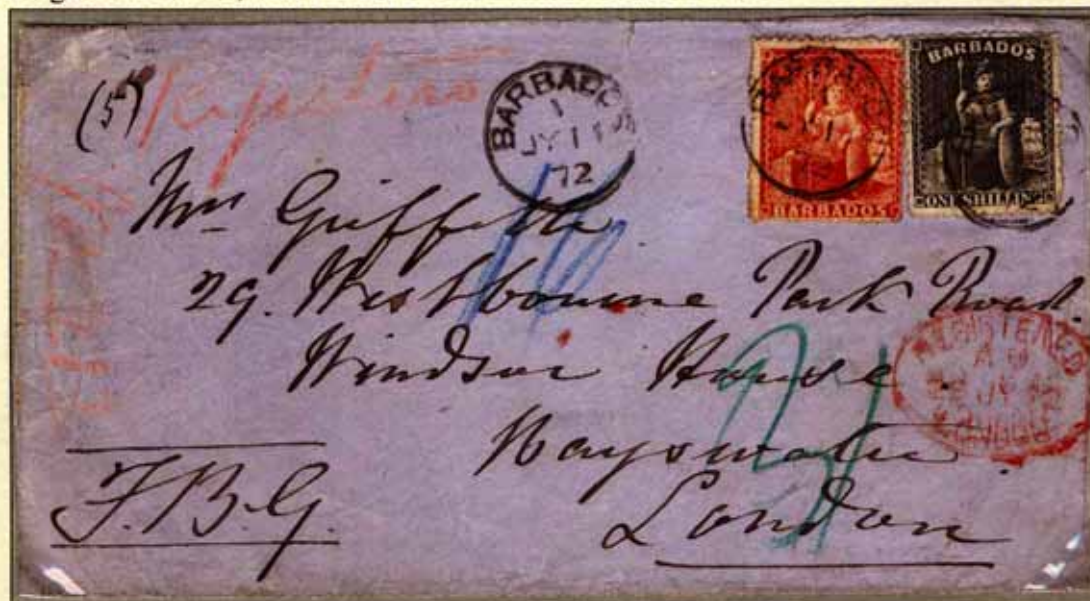 (5)
BARBADOS
1
JY 11
72
BARBADOS
BARBADOS
ONE SHILLING
Mrs Griffith
29. Westbourne Park Road.
Windsor House
Bayswater
London
F.B.G.
REGISTERED
LONDON